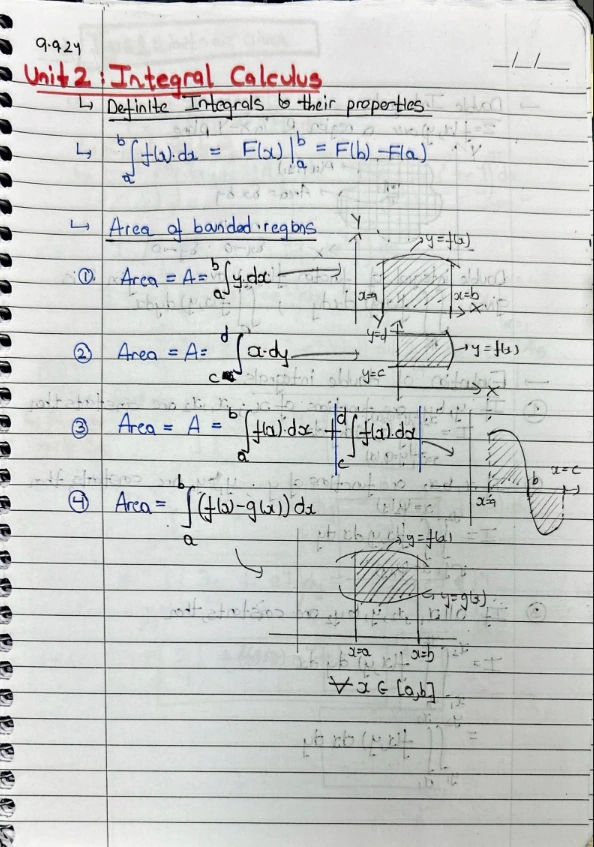 9.9.24
_/_/_
Unit 2 : Integral Calculus
↳ Definite Integrals & their properties
↳ ∫ₐᵇ f(x).dx = F(x)|ₐᵇ = F(b) - F(a)
↳ Area of bounded regions
① Area = A = ∫ₐᵇ y.dx
Y
y=f(x)
x=a
x=b
X
② Area = A = ∫_c^d x.dy
Y
y=d
y=f(x)
y=c
X
③ Area = A = ∫ₐᵇ f(x).dx + |∫_c^d f(x).dx|
x=a
b
x=c
④ Area = ∫ₐᵇ (f(x)-g(x)) dx
y=f(x)
y=g(x)
x=a
x=b
∀ x ∈ [a,b]